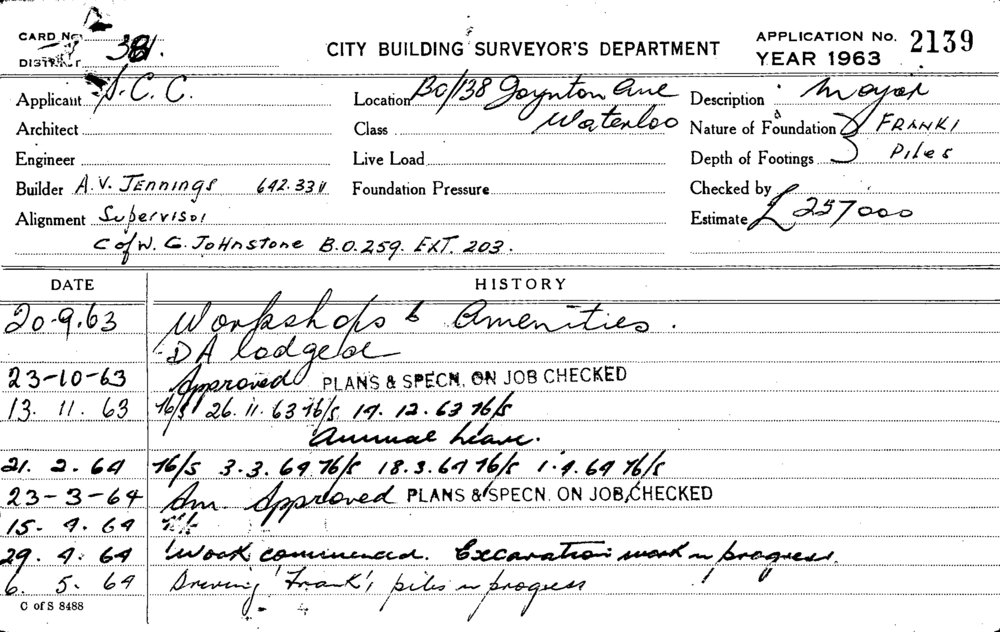 CARD No. 381.
DISTRICT
CITY BUILDING SURVEYOR'S DEPARTMENT
APPLICATION No. 2139
YEAR 1963
Applicant S.C.C.
Location Bc/138 Joynton Ave
Waterloo
Description Major
Architect
Class
Nature of Foundation FRANKI
Engineer
Live Load
Depth of Footings Piles
Builder A.V. JENNINGS 642.334
Foundation Pressure
Checked by
Alignment Supervisor
Estimate £ 257000
C of W. G. JOHNSTONE B.O.259. EXT. 203.
DATE HISTORY
20-9-63 Workshops & Amenities.
DA lodged
23-10-63 Approved PLANS & SPECN. ON JOB CHECKED
13. 11. 63 N/S 26. 11. 63 N/S 17. 12. 63 N/S
Annual Leave.
21. 2. 64 N/S 3.3.64 N/S 18.3.64 N/S 1.4.64 N/S
23-3-64 Am. Approved PLANS & SPECN. ON JOB CHECKED
15. 4. 64 N/S
29. 4. 64 Work commenced. Excavation work in progress.
6. 5. 64 Driving 'Franki' piles in progress
C of S 8488